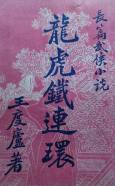 長篇武俠小說
龍虎鐵連環
王度廬著